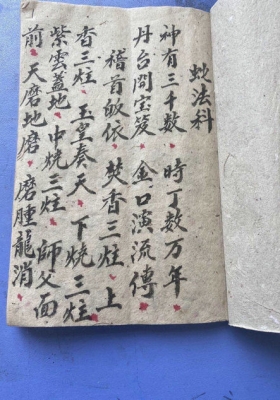 蛟法科
神有三千數 時丁数万年
丹台開宝笈 金口演流傳
稽首皈依 焚香三炷 上
香三炷 玉皇奏天 下燒三炷
紫雲蓋地 中燒三炷 師父面
前 天磨地磨 磨腫龍消